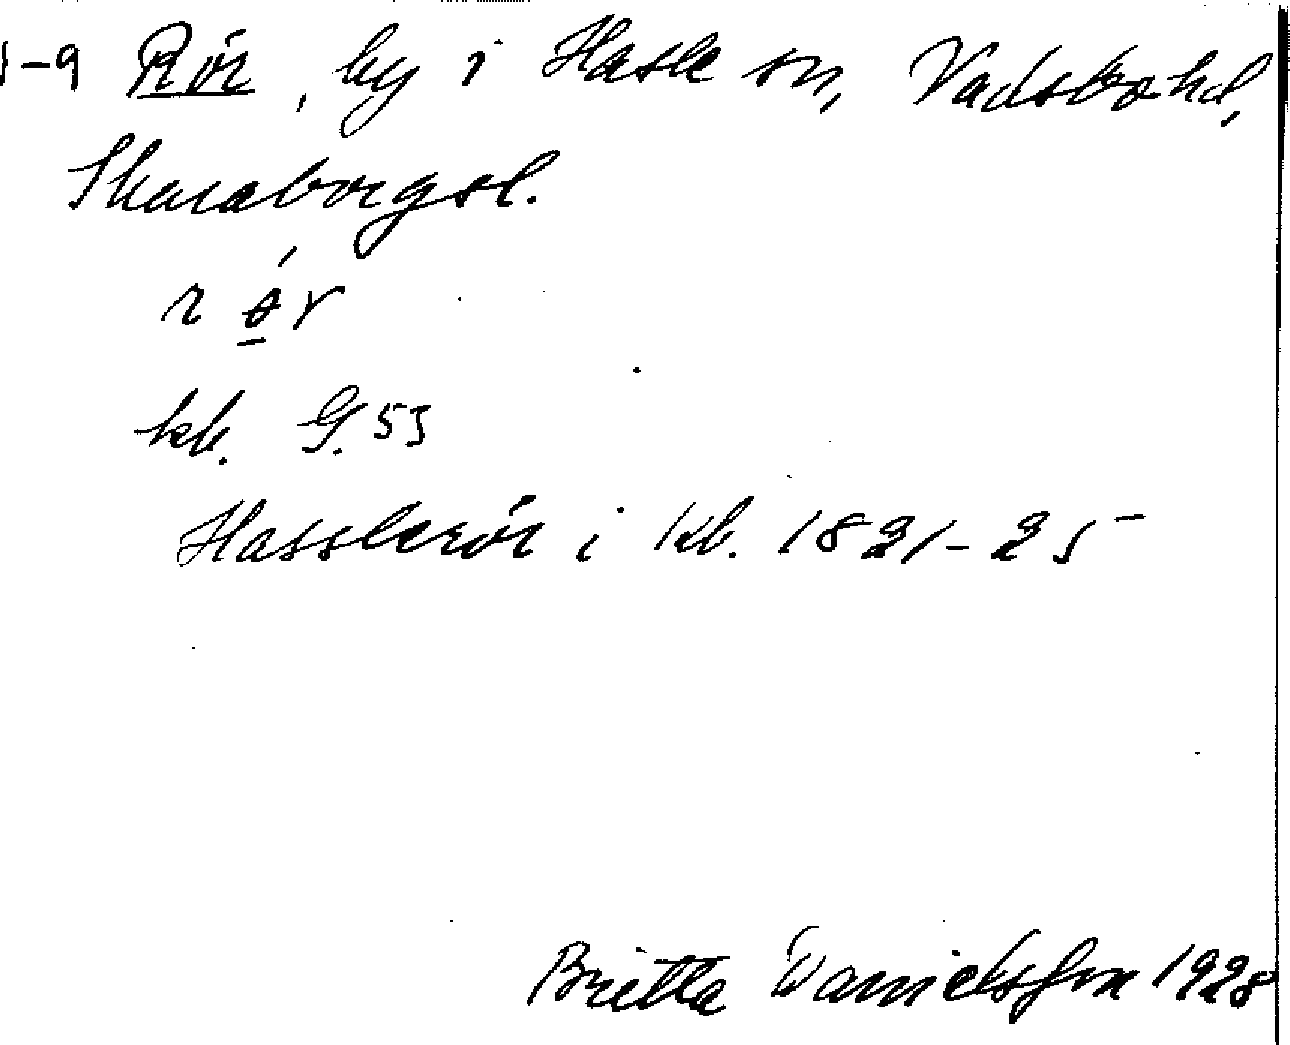 1-9 Rör, by i Hasle sn, Vadsbo hd,
Skaraborgsl.
r ǿ̲r
kk. G. 53
Hasslerör i kb. 1821-25
Britta Danielsson 1928